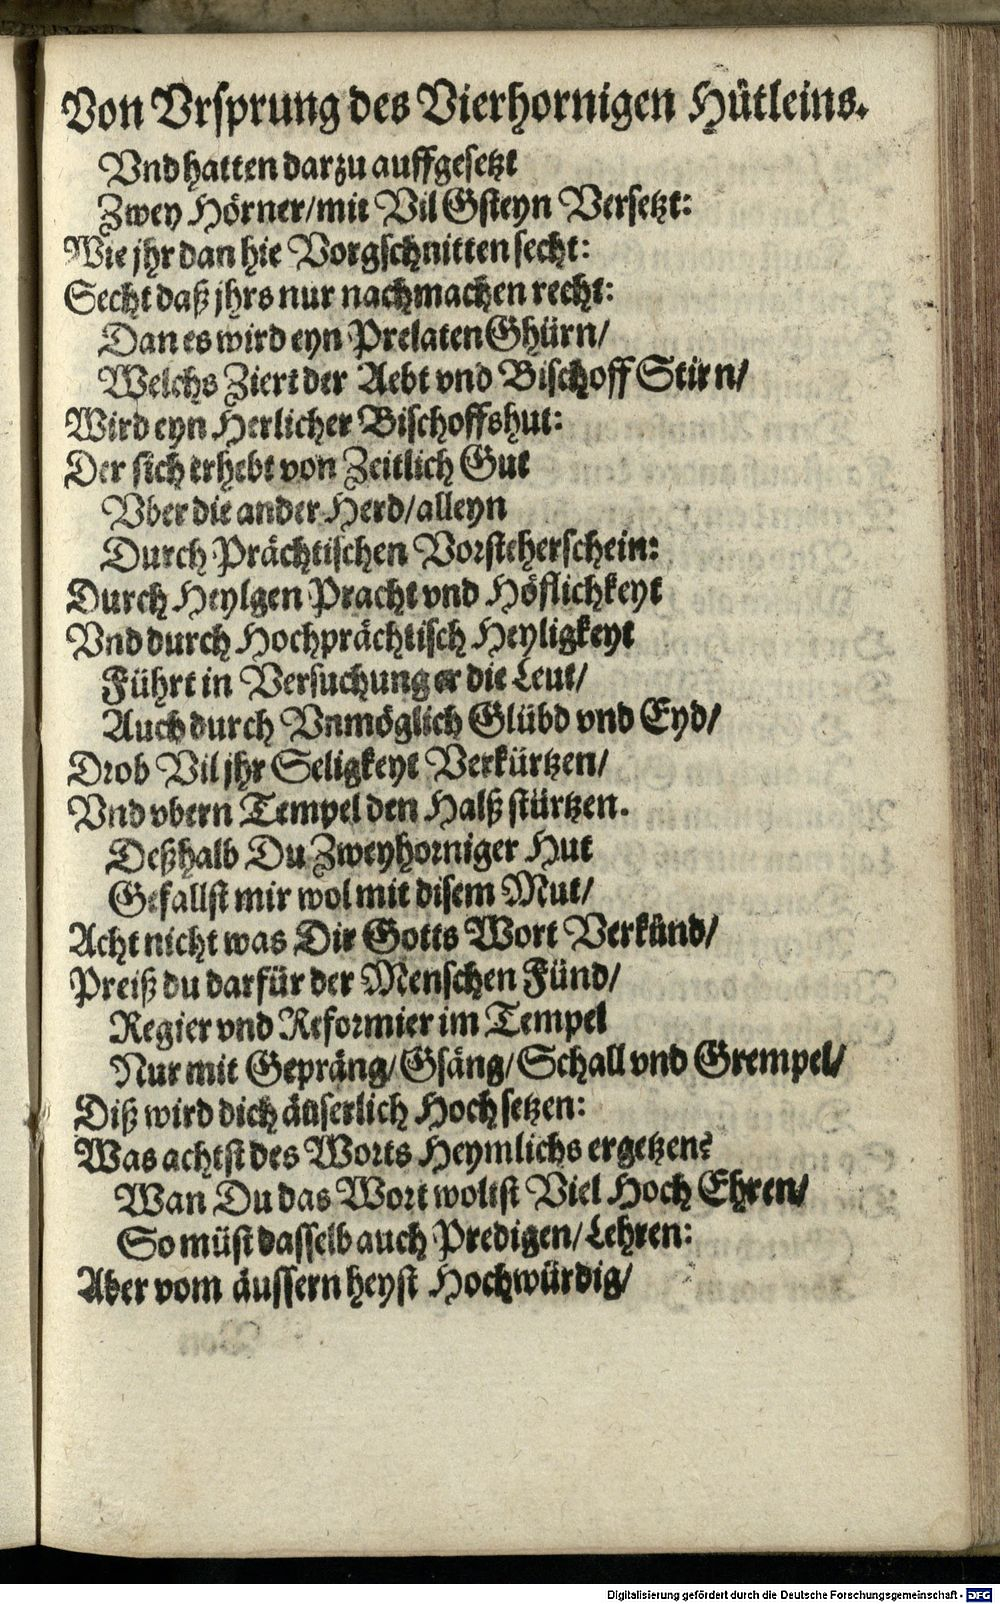 Von Vrsprung des Vierhornigen Hütleins.
Vnd hatten darzu auffgesetzt
Zwey Hörner/mit Vil Gsteyn Versetzt:
Wie jhr dan hie Vorgschnitten secht:
Secht daß jhrs nur nachmachen recht:
Dan es wird eyn Prelaten Ghürn/
Welchs Ziert der Aebt vnd Bischoff Stirn/
Wird eyn Herlicher Bischoffshut:
Der sich erhebt von Zeitlich Gut
Vber die ander Herd/alleyn
Durch Prächtischen Vorsteherschein:
Durch Heylgen Pracht vnd Höflichkeyt
Vnd durch Hochprächtisch Heyligkeyt
Führt in Versuchung er die Leut/
Auch durch Vnmöglich Glübd vnd Eyd/
Drob Vil jhr Seligkeyt Verkürtzen/
Vnd vbern Tempel den Halß stürtzen.
Deßhalb Du Zweyhorniger Hut
Gefallst mir wol mit disem Mut/
Acht nicht was Dir Gotts Wort Verkünd/
Preiß du darfür der Menschen Fünd/
Regier vnd Reformier im Tempel
Nur mit Gepräng/Gsäng/Schall vnd Grempel/
Diß wird dich äuserlich Hoch setzen:
Was achtst des Worts Heymlichs ergetzen?
Wan Du das Wort woltst Viel Hoch Ehren/
So müst dasselb auch Predigen/Lehren:
Aber vom äussern heyst Hochwürdig/
Digitalisierung gefördert durch die Deutsche Forschungsgemeinschaft - DFG